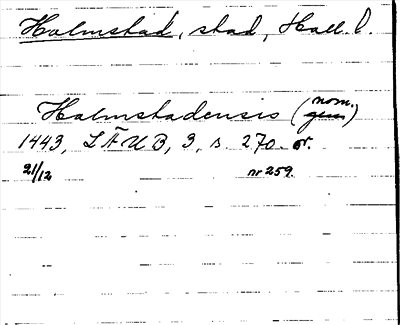 Halmstad, stad, Hall. l.
Halmstadensis (nom.
gen)
1443, LÄUB, 3, s. 270. or.
21/12 nr 259.